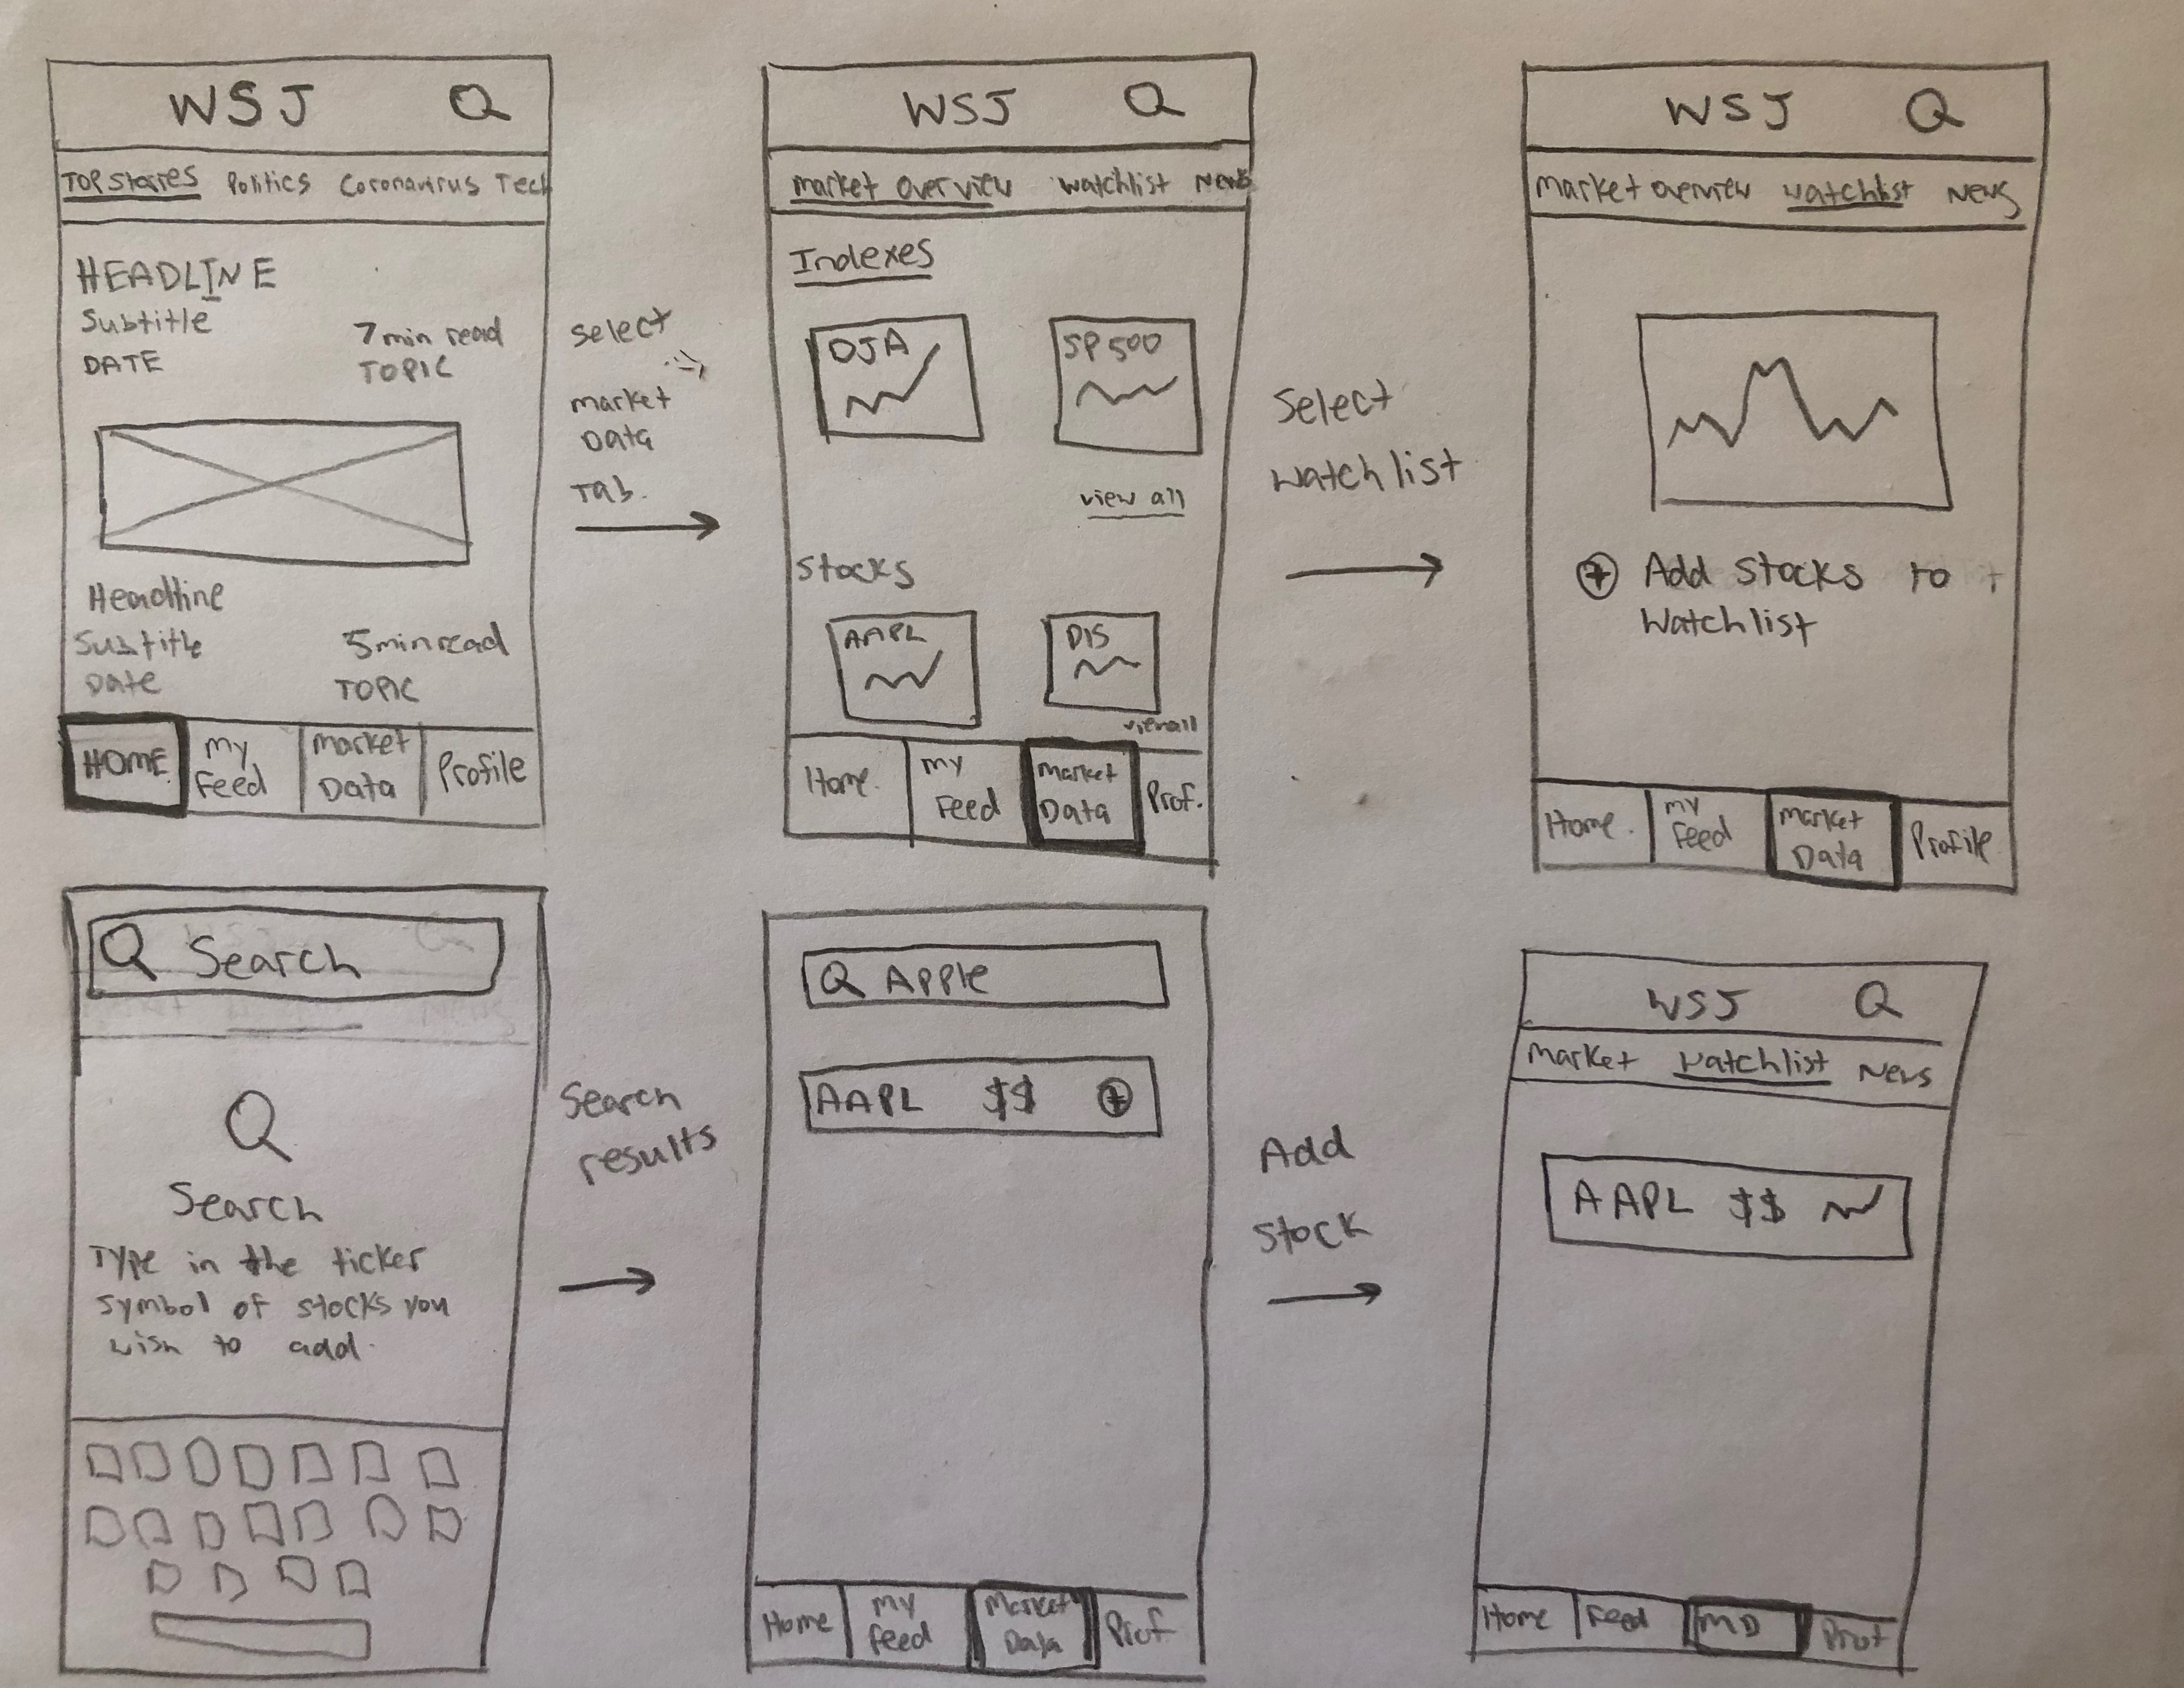 WSJ
TOP Stories Politics Coronavirus Tech
HEADLINE
Subtitle
7 min read
DATE
TOPIC
Headline
Subtitle
5 min read
Date
TOPIC
HOME
My Feed
Market Data
Profile
select
market
Data
Tab.
WSJ
Market Overview Watchlist News
Indexes
DJA
SP500
view all
Stocks
AAPL
DIS
view all
Home.
My Feed
Market Data
Prof.
Select
Watchlist
WSJ
Market overview Watchlist News
Add Stocks to
Watchlist
Home.
My Feed
Market Data
Profile
Search
Search
Type in the ticker
symbol of stocks you
wish to add.
Search
results
Apple
AAPL $$
Home
My Feed
Market Data
Prof.
Add
Stock
WSJ
Market Watchlist News
AAPL $$
Home
Feed
MD
Prof